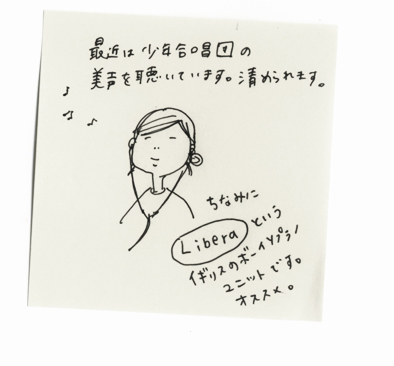 最近は少年合唱団の
美声を聴いています。清められます。
ちなみに
Liberaという
イギリスのボーイソプラノ
ユニットです。
オススメ。